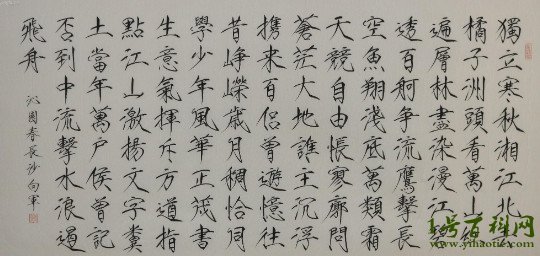 獨立寒秋湘江北去
橘子洲頭看萬山紅
遍層林盡染漫江碧
透百舸爭流鷹擊長
空魚翔淺底萬類霜
天競自由悵寥廓問
蒼茫大地誰主沉浮
携來百侣曾遊憶往
昔崢嶸歲月稠恰同
學少年風華正茂書
生意氣揮斥方遒指
點江山激揚文字糞
土當年萬户侯曾記
否到中流擊水浪遏
飛舟
沁園春長沙 向軍
1号百科网